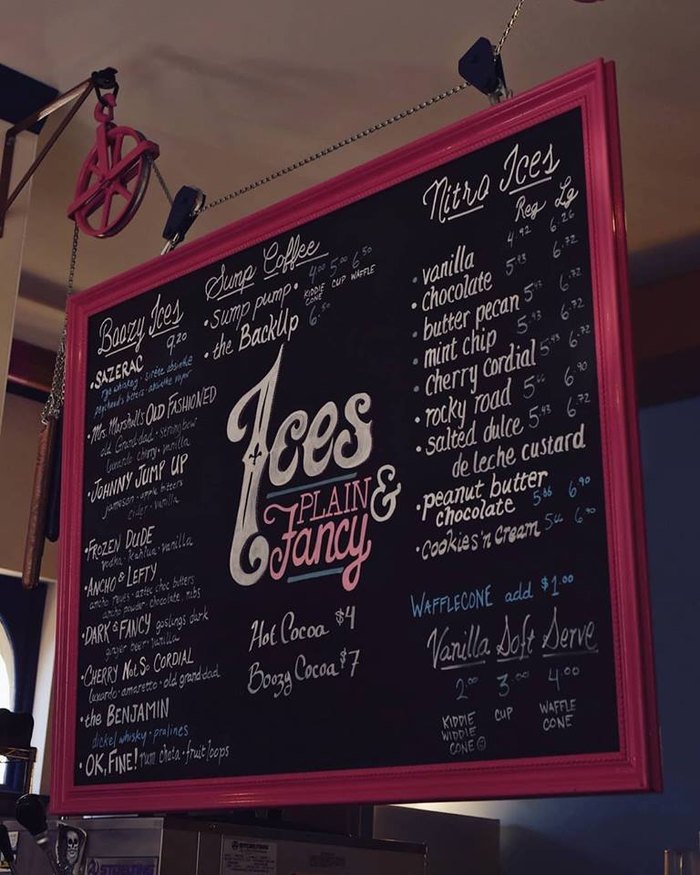 Boozy Ices
9.20
• SAZERAC
rye whiskey • sirène absinthe
peychauds bitters • absinthe vapor
• Mrs. Marshall's OLD FASHIONED
old Granddad • strongbow
luxardo cherry • vanilla
• JOHNNY JUMP UP
jameson • apple bitters
cider • vanilla
• FROZEN DUDE
vodka • kahlua • vanilla
• ANCHO & LEFTY
ancho reyes • aztec choc bitters
ancho powder • chocolate nibs
• DARK & FANCY goslings dark
ginger beer • vanilla
• CHERRY Not So CORDIAL
luxardo • amaretto • old granddad
• the BENJAMIN
dickel whisky • pralines
• OK, FINE! rum chata • fruit loops
Sump Coffee
• sump pump • 4.00 5.00 6.50
KIDDIE CONE CUP WAFFLE
• the BackUp 6.50
Ices
PLAIN &
Fancy
Hot Cocoa $4
Boozy Cocoa $7
Nitro Ices
Reg Lg
• vanilla 4.92 6.26
• chocolate 5.43 6.72
• butter pecan 5.43 6.72
• mint chip 5.43 6.72
• cherry cordial 5.43 6.72
• rocky road 5.66 6.90
• salted dulce 5.43 6.72
de leche custard
• peanut butter
chocolate 5.66 6.90
• cookies 'n cream 5.66 6.90
WAFFLECONE add $1.00
Vanilla Soft Serve
2.00 3.00 4.00
KIDDIE WIDDIE CONE ☺ CUP WAFFLE CONE